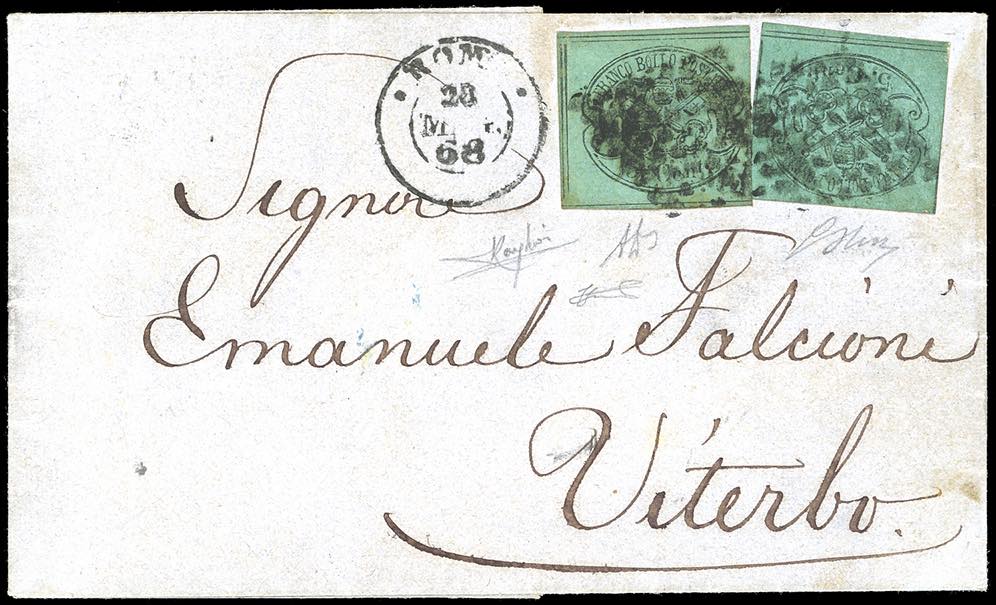 ROMA
23
68
FRANCO BOLLO POSTALE
Signor
Emanuele Falcioni
Viterbo.